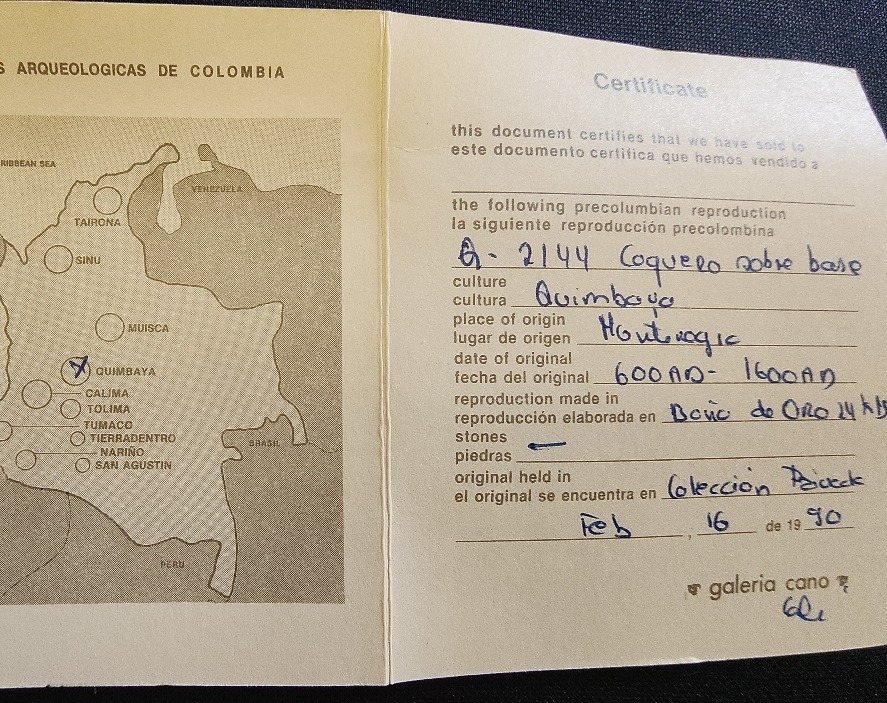 S ARQUEOLOGICAS DE COLOMBIA
RIBBEAN SEA
VENEZUELA
TAIRONA
SINU
MUISCA
QUIMBAYA
CALIMA
TOLIMA
TUMACO
TIERRADENTRO
NARIÑO
SAN AGUSTIN
BRASIL
PERU
Certificate
this document certifies that we have sold to
este documento certifica que hemos vendido a
the following precolumbian reproduction
la siguiente reproducción precolombina
2144 Coquero sobre base
culture
cultura Quimbaya
place of origin
lugar de origen
date of original
fecha del original 600AD- 1600AD
reproduction made in
reproducción elaborada en Baño de ORO 24
stones
piedras
original held in
el original se encuentra en Colección
Feb, 16 de 1990
galeria cano